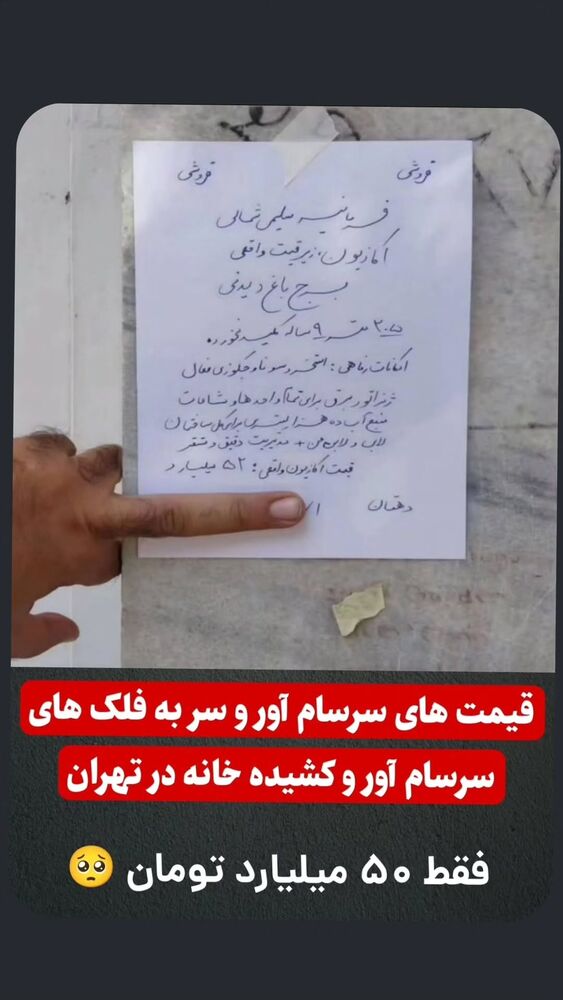 فروشی
فروشی
فرمانیه دیلمی شمالی
اکازیون، زیر قیمت واقعی
برج باغ دیدنی
۲۰۵ متر ۹ ساله کلید نخورده
امکانات رفاهی: استخر و سونا و جکوزی فعال
ژنراتور برق برای تمام واحدها و مشاعات
منبع آب ده هزار لیتری برای کل ساختمان
لابی و لابی من + مدیریت دقیق و مستقر
قیمت اکازیون واقعی: ۵۲ میلیارد
دهقان
قیمت های سرسام آور و سر به فلک های
سرسام آور و کشیده خانه در تهران
فقط ۵۰ میلیارد تومان 🥺